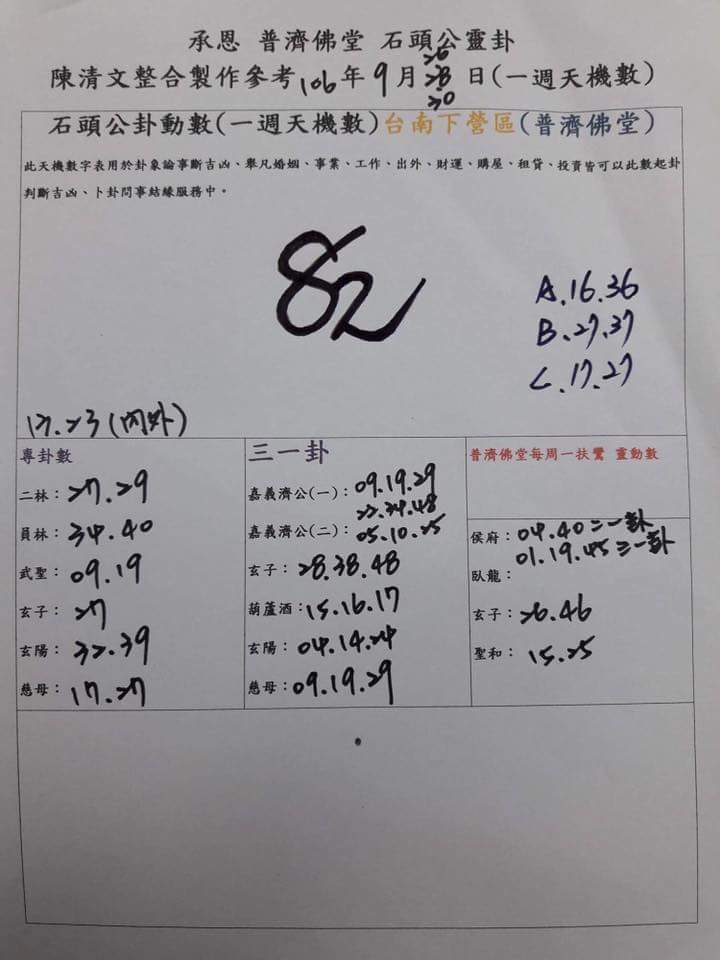 承恩 普濟佛堂 石頭公靈卦
26
陳清文整合製作參考106年9月28日(一週天機數)
30
石頭公卦動數(一週天機數)台南下營區(普濟佛堂)
此天機數字表用於卦象論事斷吉凶、舉凡婚姻、事業、工作、出外、財運、購屋、租貸、投資皆可以此數起卦
判斷吉凶、卜卦問事結緣服務中。
82
A.16.36
B.27.37
C.17.27
12.23(內外)
專卦數
二林：27.29
員林：34.40
武聖：09.19
玄子：27
玄陽：32.39
慈母：17.27
三一卦
嘉義濟公(一)：09.19.29
22.34.48
嘉義濟公(二)：05.10.25
玄子：28.38.48
葫蘆酒：15.16.17
玄陽：04.14.24
慈母：09.19.29
普濟佛堂每周一扶鸞 靈動數
侯府：04.40二一卦
01.19.45三一卦
臥龍：
玄子：26.46
聖和：15.25